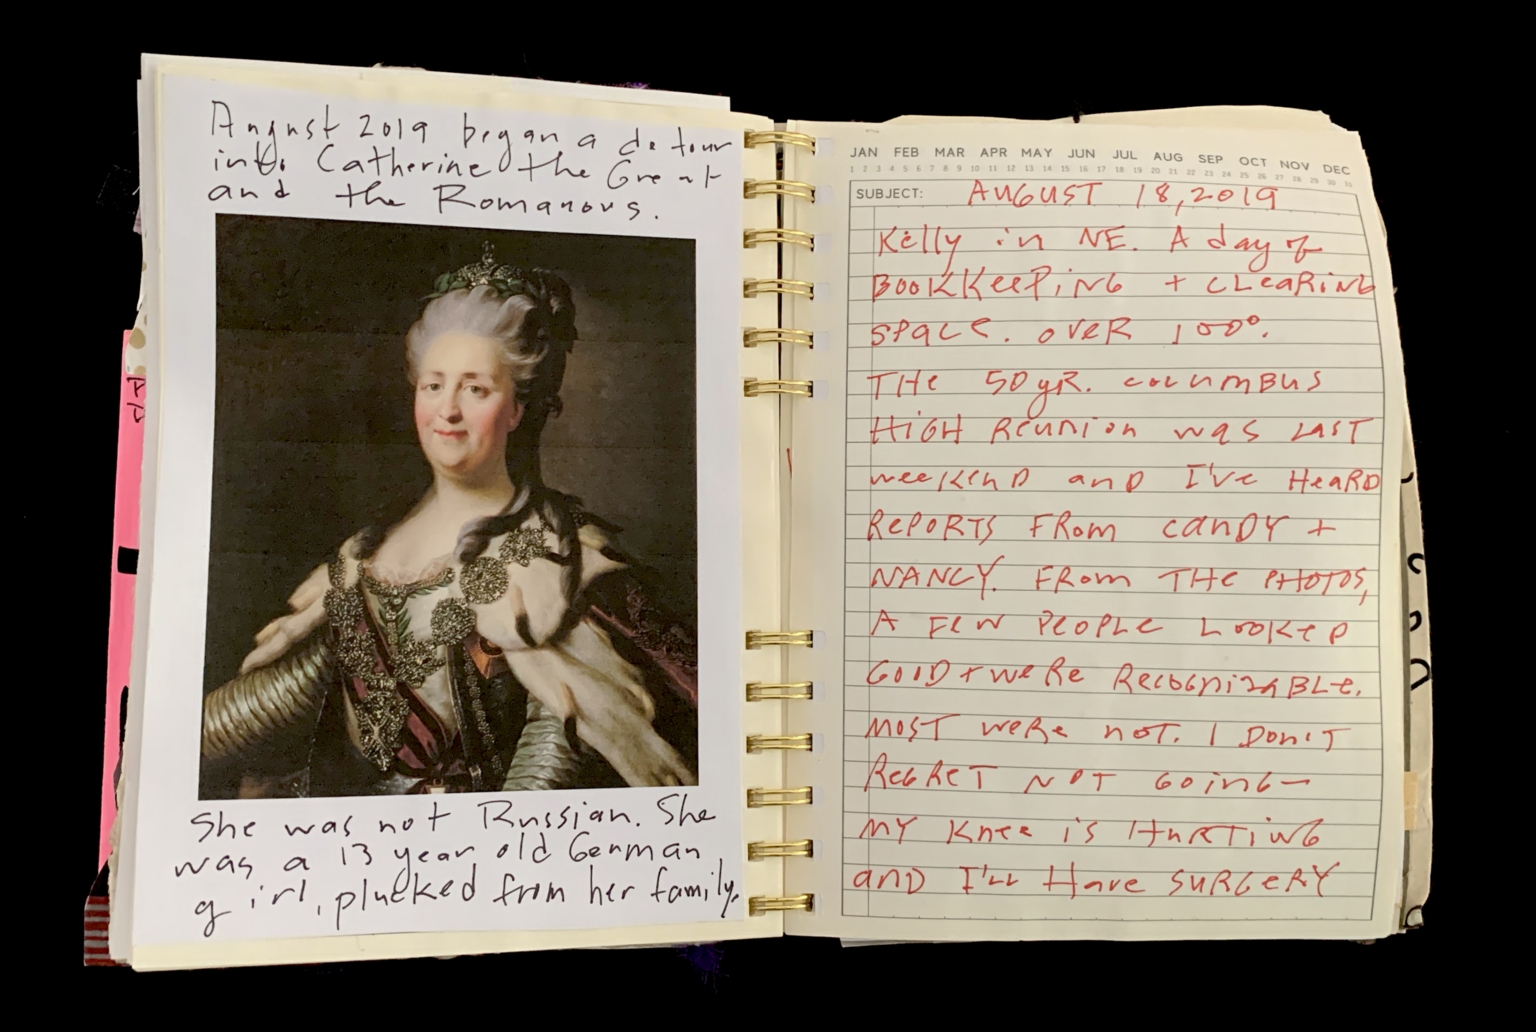 August 2019 began a detour
into Catherine the Great
and the Romanovs.
She was not Russian. She
was a 13 year old German
girl, plucked from her family.
JAN FEB MAR APR MAY JUN JUL AUG SEP OCT NOV DEC
1 2 3 4 5 6 7 8 9 10 11 12 13 14 15 16 17 18 19 20 21 22 23 24 25 26 27 28 29 30 31
SUBJECT: AUGUST 18, 2019
Kelly in NE. A day of
BOOKKEEPING + CLEARING
SPACE. OVER 100°.
THE 50 YR. COLUMBUS
HIGH REUNION WAS LAST
WEEKEND AND I'VE HEARD
REPORTS FROM CANDY +
NANCY. FROM THE PHOTOS,
A FEW PEOPLE LOOKED
GOOD + WERE RECOGNIZABLE.
MOST WERE NOT. I DON'T
REGRET NOT GOING—
MY KNEE IS HURTING
AND I'LL HAVE SURGERY